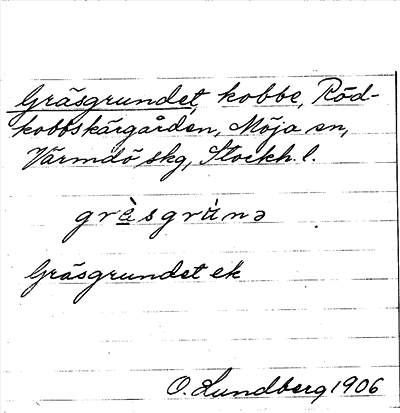 Gräsgrundet, kobbe, Röd-
kobbskärgården, Möja sn,
Värmdö skg, Stockh. l.
grὲsgru̇̀nə
Gräsgrundet ek
O. Lundberg 1906